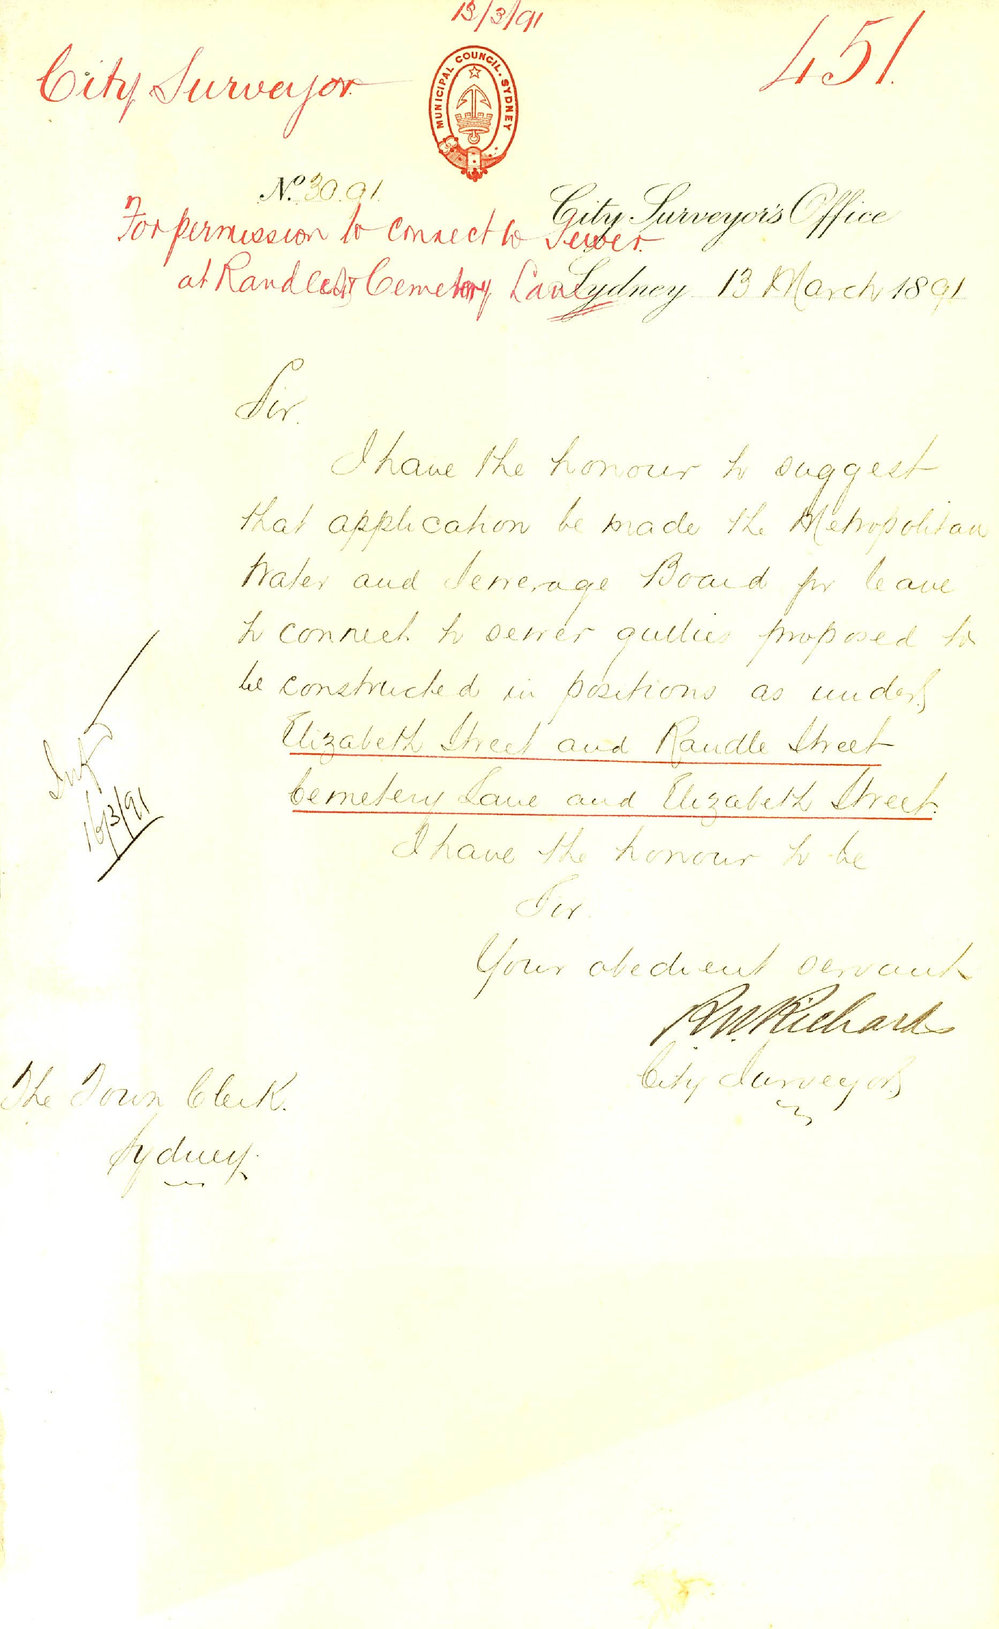 13/3/91
City Surveyor
451.
MUNICIPAL COUNCIL. SYDNEY
No. 30.91.
City Surveyor's Office
For permission to connect to Sewer
at Randle St Cemetery Lane
Sydney 13 March 1891
Sir.
I have the honour to suggest
that application be made the Metropolitan
Water and Sewerage Board for leave
to connect to sewer gullies proposed to
be constructed in positions as under
Elizabeth Street and Randle Street
Cemetery Lane and Elizabeth Street.
16/3/91
I have the honour to be
Sir.
Your obedient servant
R.W. Richards
City Surveyor
The Town Clerk.
Sydney.